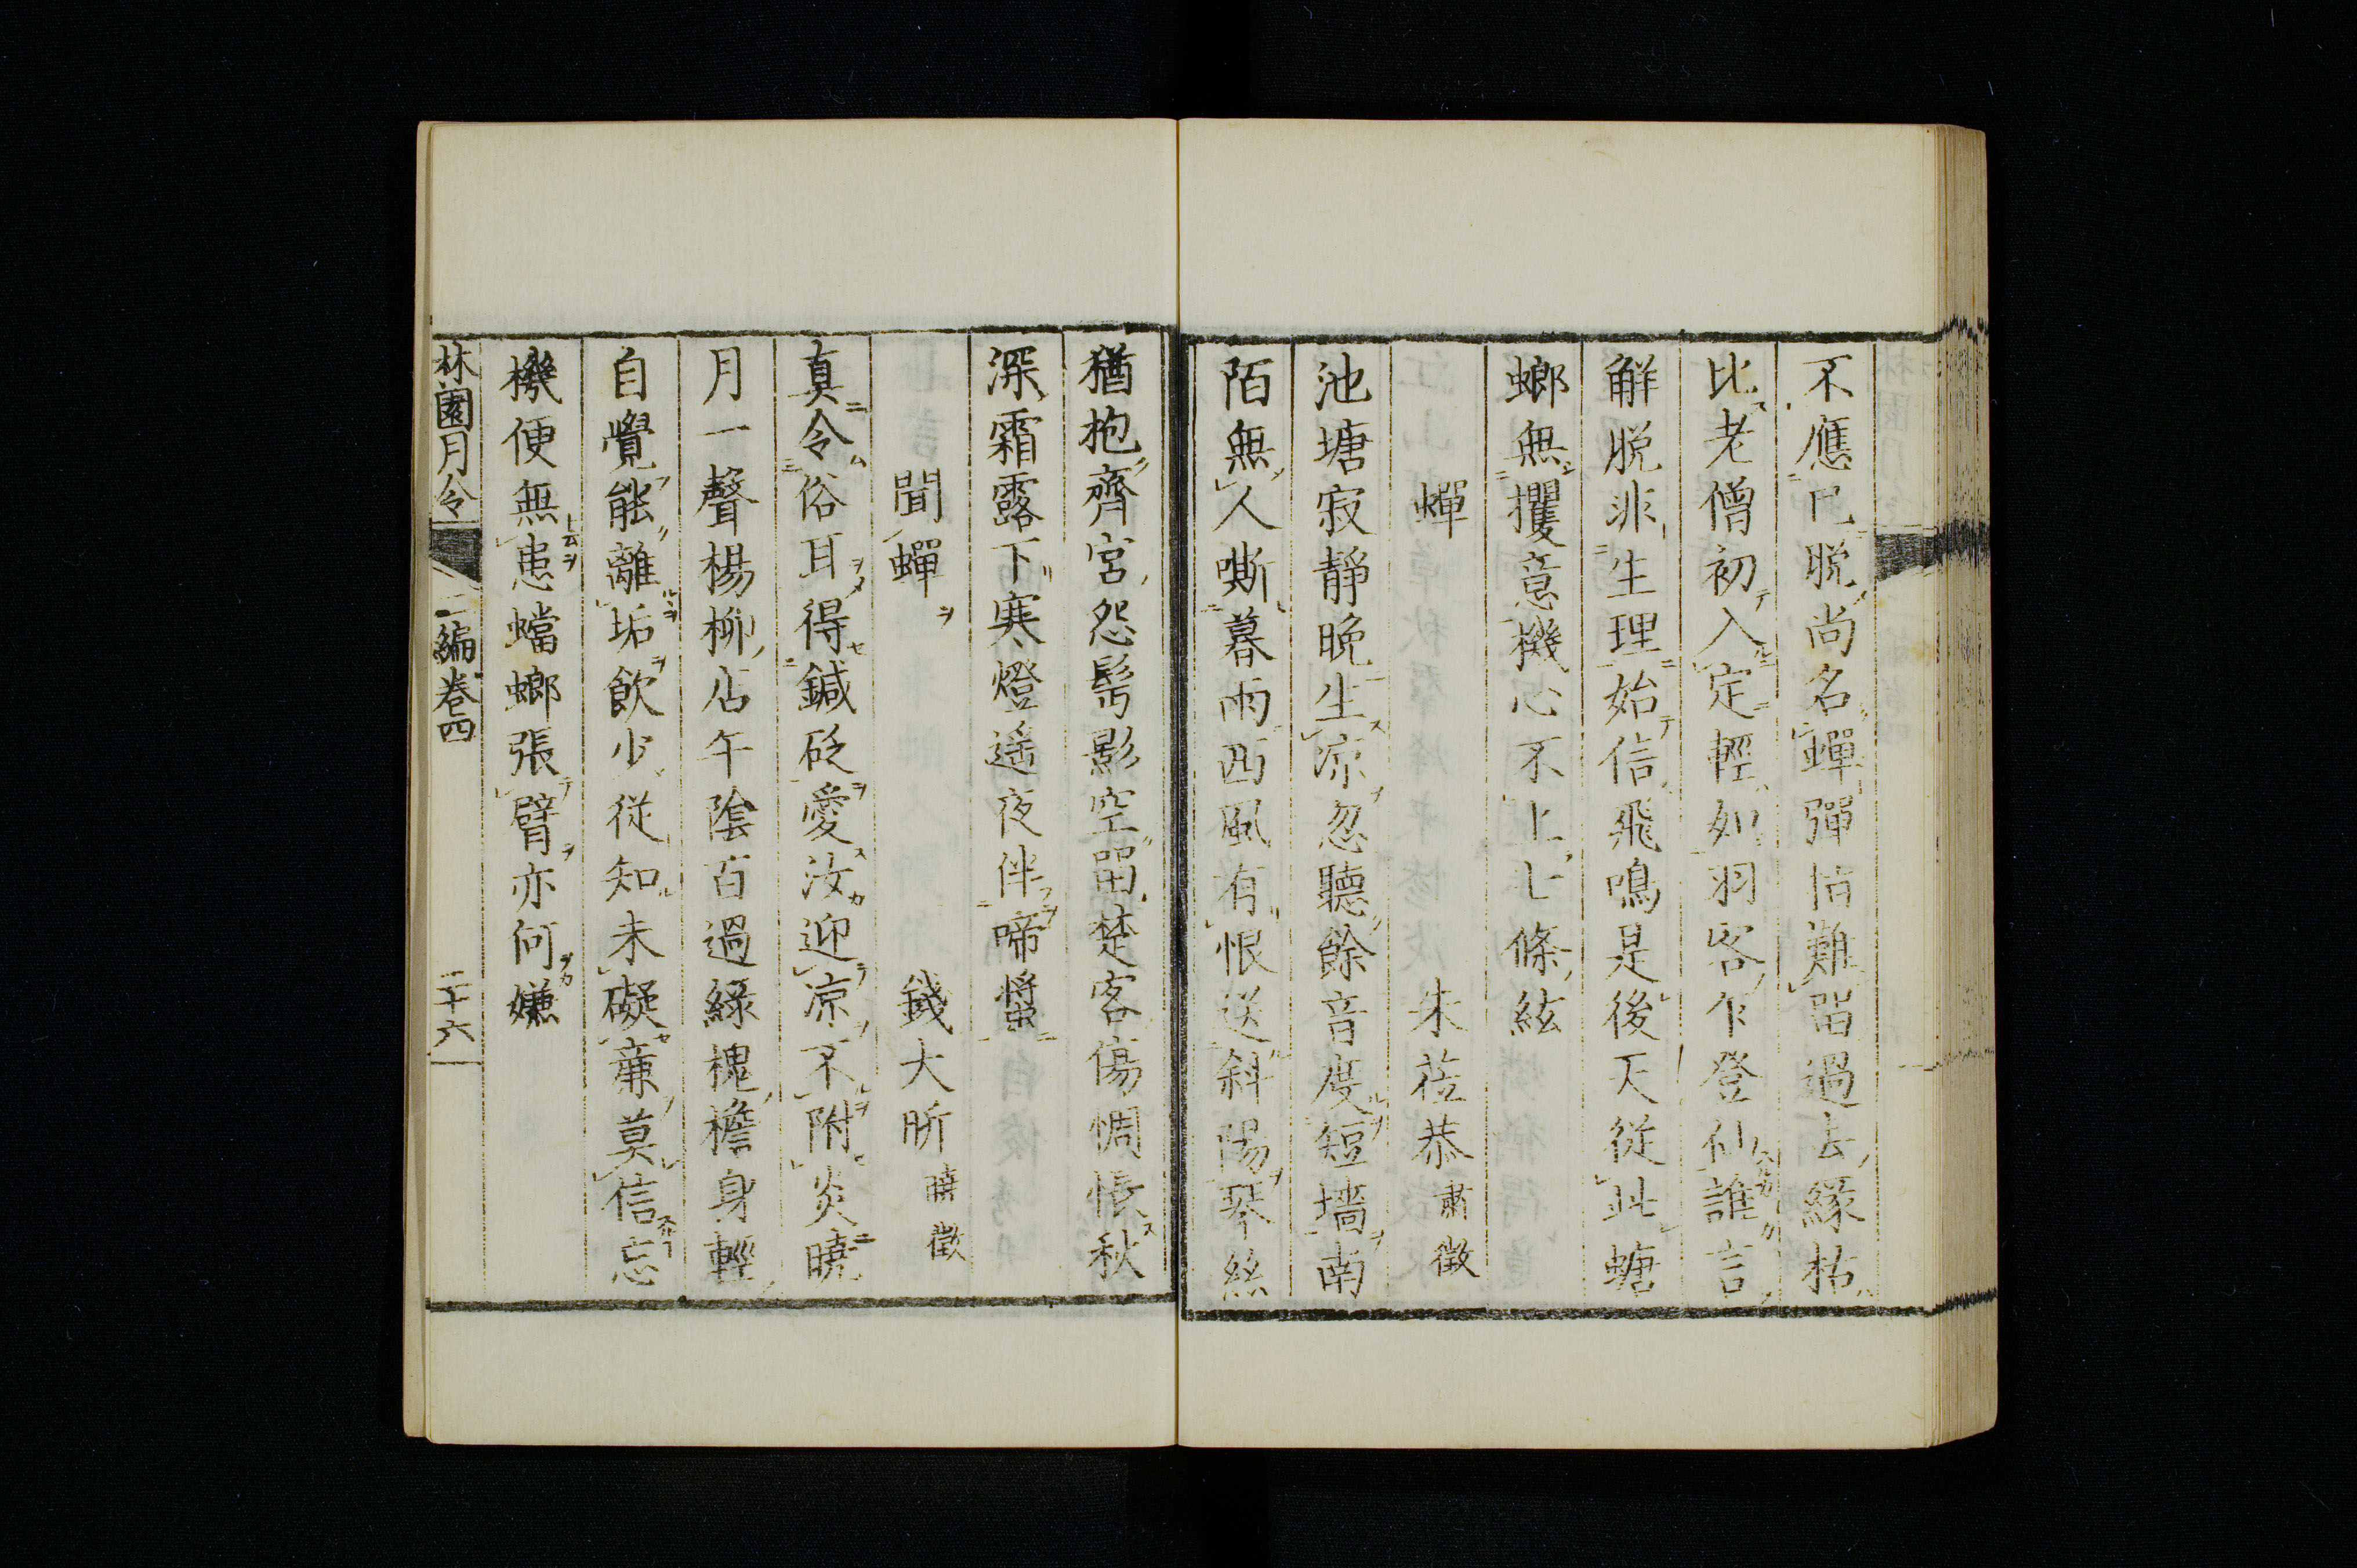 不應已脱尚名蟬蟬怕難留過去緣枯
比老僧初入定輕如羽客乍登仙誰言
解脱非生理始信飛鳴是後天從此螗
螂無攫意機心不上七條絃
蟬 朱莅恭 肅徵
池塘寂靜晚生凉忽聽餘音度短墻南
陌無人嘶暮雨西風有恨送斜陽琴絲
猶抱齊宮怨鬢影空留楚客傷惆悵秋
深霜露下寒燈遥夜伴啼螿
聞蟬 錢大昕 曉徵
真令俗耳得鍼砭愛汝迎凉不附炎曉
月一聲楊柳占午陰百過緑槐檐身輕
自覺能離垢飲少從知未礙廉莫信忘
機便無患蟷螂張臂亦何嫌
林園月令 二編卷四 二十六